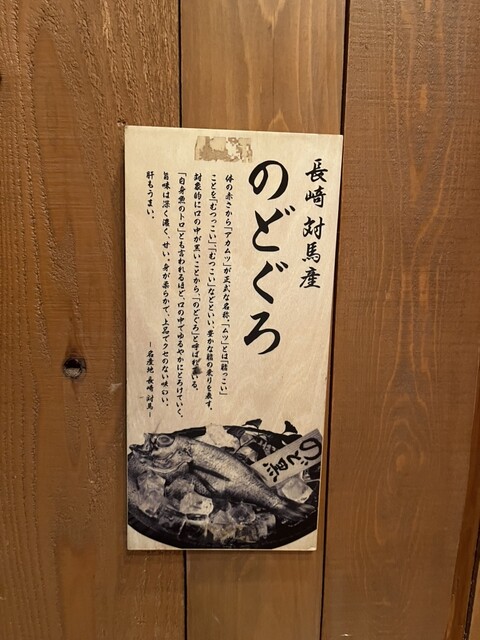 長崎 対馬産
のどぐろ
体の赤さから「アカムツ」が正式な名称。「ムツ」とは「脂っこい」
ことを「むつっこい」「むつこい」などといい、豊かな脂の乗りを表す。
対象的に口の中が黒いことから、「のどぐろ」と呼ばれている。
「白身魚のトロ」とも言われるほど、口の中でゆるやかにとろけていく。
旨味は深く濃く、甘い。身が柔らかで、上品でクセのない味わい。
肝もうまい。
－名産地 長崎 対馬－
のど黒